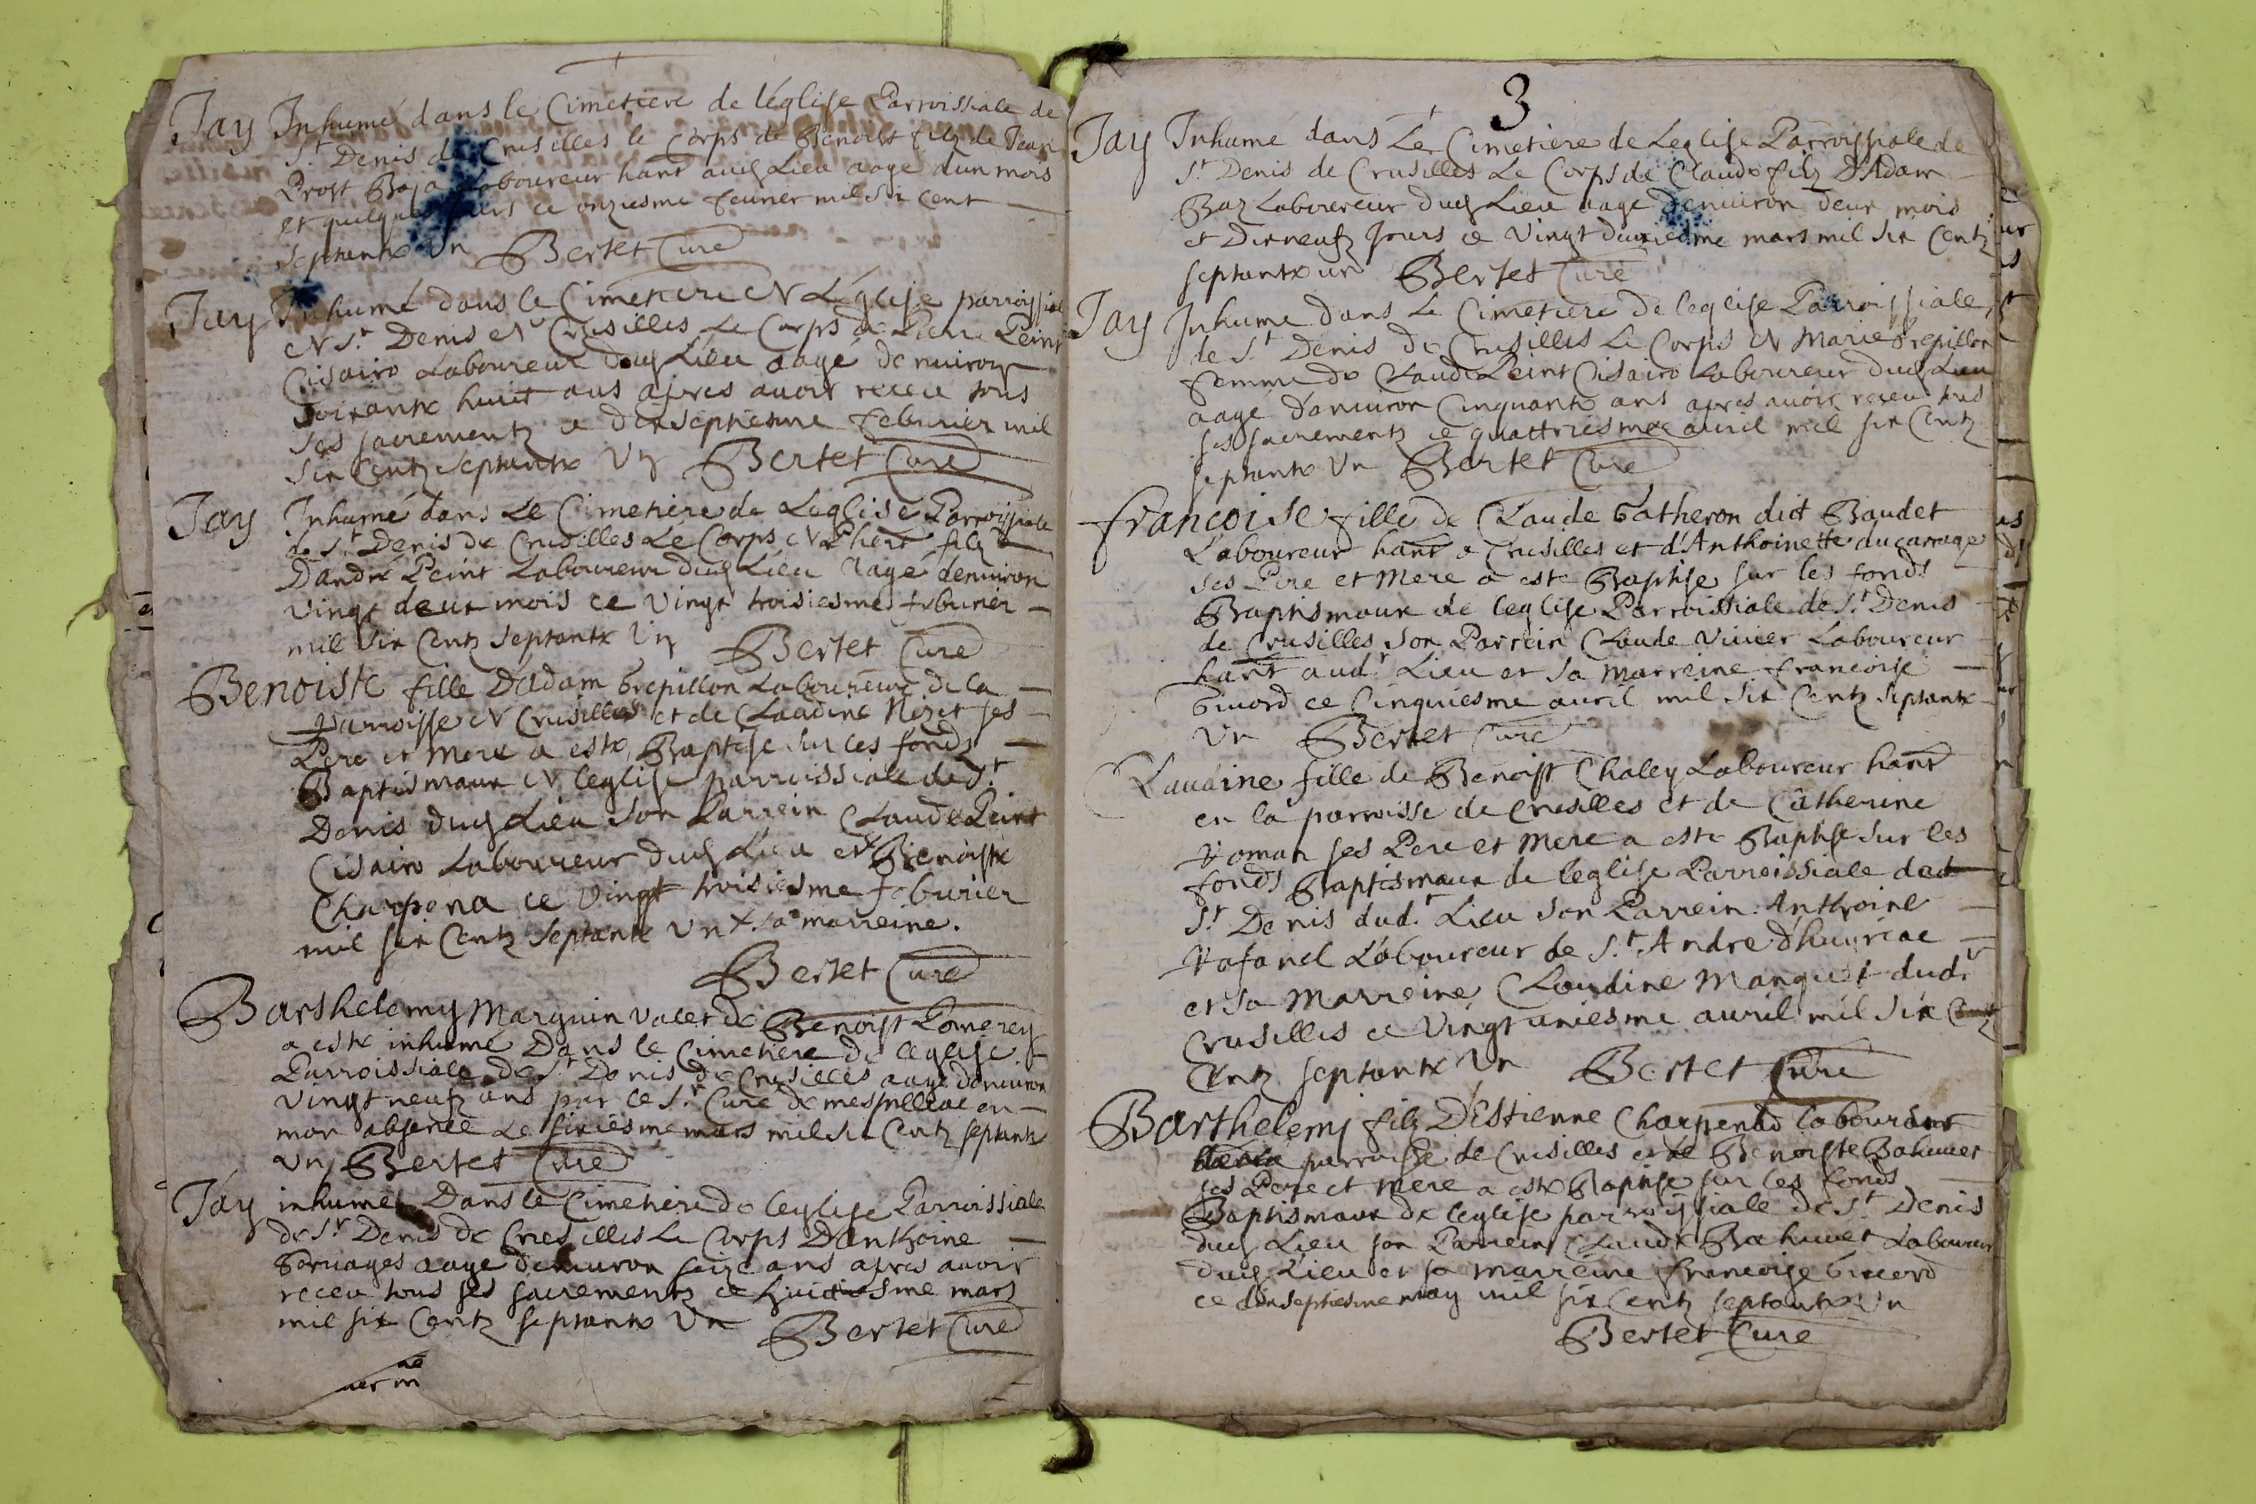 Jay Inhumé dans le Cimetiere de léglise Parroissiale de
St Denis de Crusilles le Corps de Benoist filz de Jean
Prost laboureur hant aud Lieu aage dun mois
et quelques jours ce onziesme feurier mil six cent
septante Un Bertet Curé
Jay Inhumé dans le Cimetiere de Léglise parroissial
de St Denis de Crusilles Le Corps de Pierre Peint
Cisairo Laboureur dud Lieu aagé denuiron
soixante huict ans apres auoir receu tous
ses sacrementz ce dixseptiesme feburier mil
six Centz septante Un Bertet Curé
Jay Inhumé dans Le Cimetiere de Leglise Parroissiale
de St Denis de Crusilles Le Corps de filz
Dandre Peint Laboureur dud Lieu aagé denuiron
vingt deux mois ce vingt troisiesme feburier
mil six Centz septante Un Bertet Curé
Benoiste fille Dadam Grepillon Laboureur de la
parroisse de Crusilles et de Claudine Nezet ses
Pere et Mere a este Baptise sur les fonds
Baptismaux de leglise parroissiale de St
Denis dud Lieu son Parrein Claude Peint
Cisairo Laboureur dud Lieu et Benoiste
Charpena ce vingt troisiesme feburier
mil six Centz septante Un x sa marreine.
Bertet Curé
Barthelemy Marguin valet de Benoist Pomerey
a este inhumé Dans le Cimetiere de leglise
Parroissiale de St Denis de Crusilles aagé denuiron
vingt neufz ans par le Sr Curé de mespilliac en
mon absence Le sixiesme mars mil six Centz septante
Un Bertet Curé
Jay inhumé Dans le Cimetiere de leglise Parroissiale
de St Denis de Crusilles Le Corps Danthoine
aage denuiron seize ans apres auoir
receu tous ses sacrementz ce huictiesme mars
mil six Centz septante Un Bertet Curé
3
Jay Inhumé dans Le Cimetiere de Leglise Parroissiale de
St Denis de Crusilles Le Corps de Claude filz DAdam
Baz Laboureur dud Lieu aage denuiron deux mois
et Dixneufz Jours ce vingt deuxiesme mars mil six Centz
septante un Bertet Curé
Jay Inhumé dans Le Cimetiere de leglise Parroissiale
de St Denis de Crusilles Le Corps de Marie Grepillon
femme de Claude Peint Cisairo Laboureur dud Lieu
aagé denuiron Cinquante ans apres auoir receu tous
ses sacrementz ce quattriesme auril mil six Centz
septante Un Bertet Curé
francoise fille de Claude Gatheron dict Baudet
Laboureur hant a Crusilles et d'Anthoinette ducarrage
ses Pere et Mere a este Baptise sur les fonds
Baptismaux de leglise Parroissiale de St Denis
de Crusilles Son Parrein Claude Viuier Laboureur
hant aud Lieu et sa Marreine francoise
Guiord ce Cinquiesme auril mil six Centz septante
Un Bertet Curé
Claudine fille de Benoist Chaley Laboureur hant
en la parroisse de Crusilles et de Catherine
ses Pere et Mere a este Baptise sur les
fonds Baptismaux de leglise Parroissiale
St Denis dud Lieu son Parrein Anthoine
Laboureur de St Andre d'huyriac
et sa Marreine Claudine Manguet dud
Crusilles ce vingtuniesme auril mil six
Centz septante Un Bertet Curé
Barthelemi filz DEstienne Charpena Labourant
parroisse de Crusilles et de Benoiste Bahuuet
ses Pere et Mere a este Baptise sur les fonds
Baptismaux de leglise parroissiale de St Denis
dud Lieu son Parrein Claude Bahuuet Laboureur
dud Lieu et sa Marreine francoise Guiord
ce dixseptiesme may mil six Centz septante Un
Bertet Curé